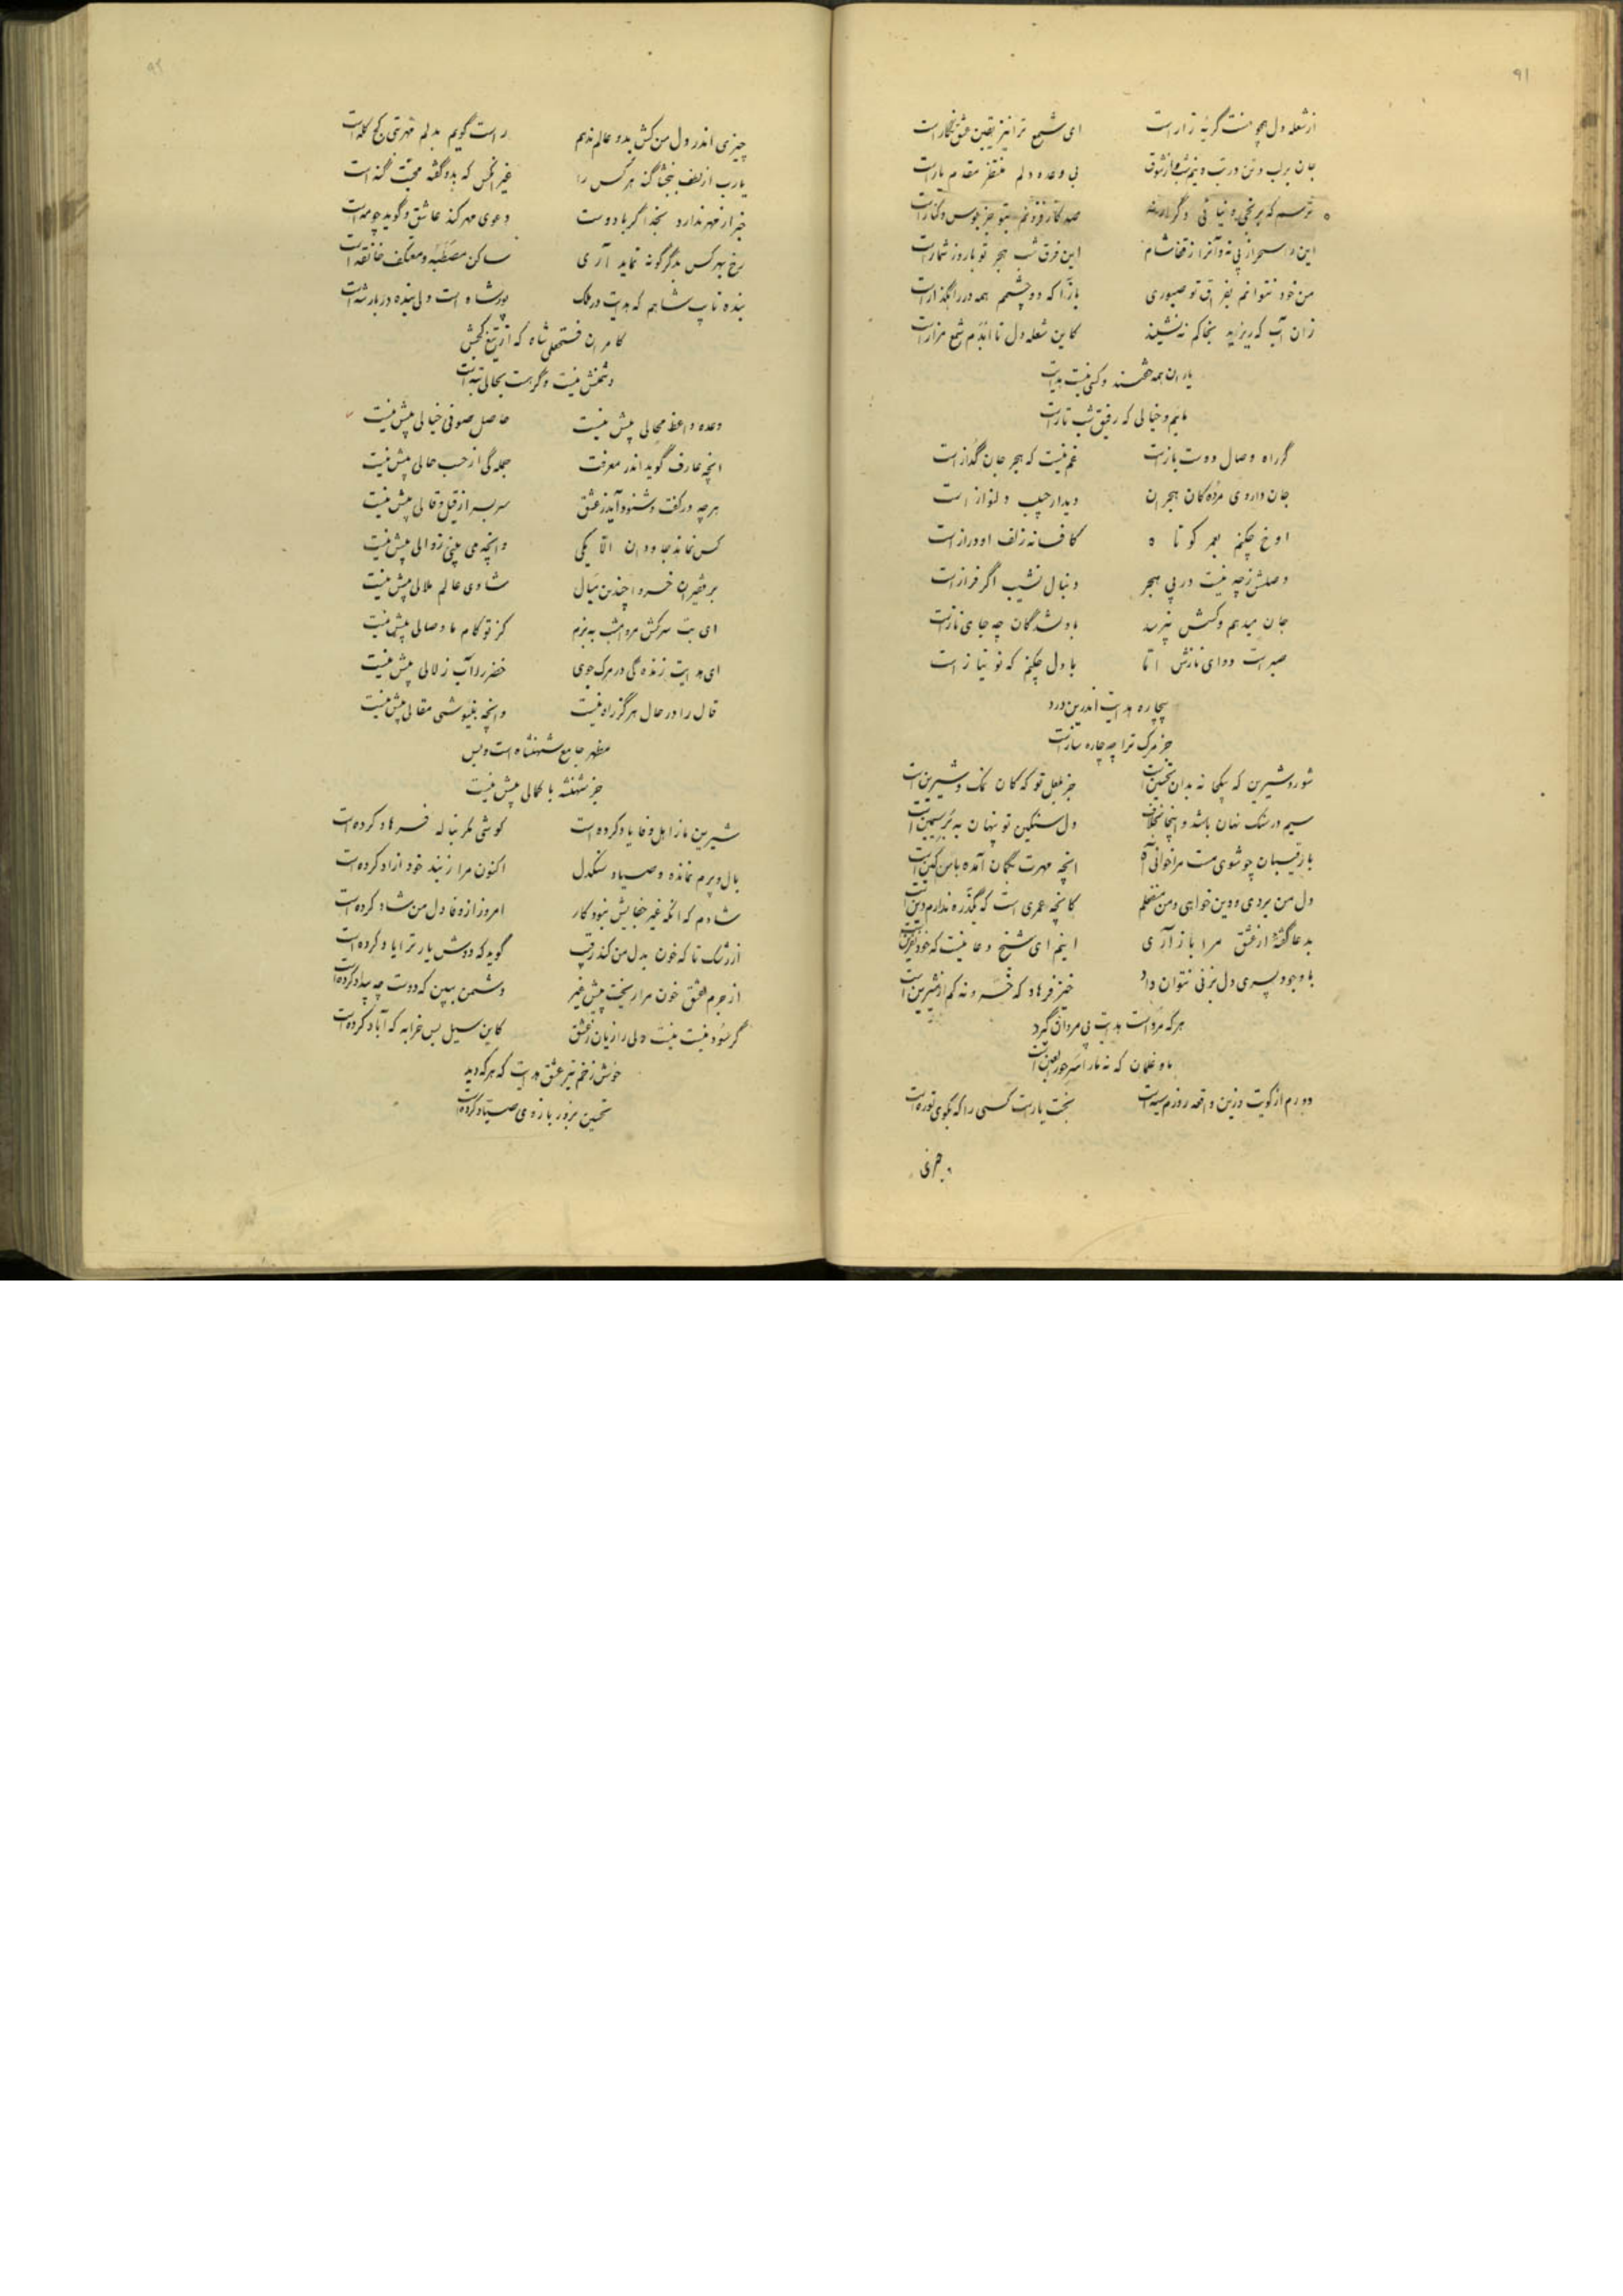 ۹۱
از شعله دل همچو منت گریه زار است ای شمع ترا نیز یقین عشق نگار است
جان بر لب و تن در تب و نیم شب و از شوق بی وعده دلم منتظر مقدم یار است
ترسم که برنجی و نیائی دگر ارنه صد کار فزونم بتو جز بوس و کنار است
این را سحر از پی نه و آنرا ز قفا شام این فرق شب هجر تو با روز شمار است
من خود نتوانم بفراق تو صبوری بازآ که دو چشمم همه در راهگذار است
زان آب که ریزید بخاکم نه نشیند کاین شعله دل تا ابدم شمع مزار است
یاران همه خفتند و کسی نیست هدایت
مائیم و خیالی که رفیق شب تار است
گر راه وصال دوست باز است غم نیست که هجر جان گداز است
جان داروی مرده کان هجران دیدار حبیب دلنواز است
اوخ چکنم بعمر کوتاه کافسانه زلف او دراز است
وصلش زچه نیست در پی هجر دنبال نشیب اگر فراز است
جان میدهم و کسش نپرسد با دلشدگان چه جای ناز است
صبر است دوای نازش اما با دل چکنم که نو نیاز است
بیچاره هدایت اندرین درد
جز مرگ ترا چه چاره ساز است
شور و شیرین که بیکجا نه بدان تحسین است جز بلعل تو که کان نمک و شیرین است
سیم در سنگ نهان باشد و اینجا بخلاف دل سنگین تو پنهان به بر سیمین است
با رقیبان چو شوی مست مرا خوانی آه آنچه مهرت بگمان آمده با من کین است
دل من بردی و دین خواهی و من منفعلم کانچه عمری است که بگذره ندارم دین است
بدعا گفتهٔ از عشق مرا باز آری اینم ای شیخ دعا نیست که خود نفرین است
با وجود پسری دل بزنی نتوان داد خیز فرهاد که خسرو نه کم از شیرین است
هرکه مرد است هدایت پی مردان گیرد
ما و غلمان که نه ما را سر حورالعین است
دورم از کویت و زین واقعه روزم سیه است بخت یار است کسی را که بکوی تو ره است
چیزی
۹۲
چیزی اندر دل من کش بدو عالم ندهم راست گویم بدلم مهر بتی کج کله است
یارب از لطف ببخشا گنه هرکس را غیر آنکس که بدو گفته محبت گنه است
خبر از مهر ندارد بخدا گر با دوست دعوی مهر کند عاشق و گوید چو مه است
رخ بهرکس بدگرگونه نماید آری ساکن مصطبه و معتکف خانقه است
بنده تا پ شاهم که هدایت در ملک پور شاه است ولی بنده دربار شه است
کامران فتحعلی شاه که از تیغ کجش
دشمنش نیست وگر هست بحالی تبه است
وعده واعظ محالی بیش نیست حاصل صوفی خیالی بیش نیست
آنچه عارف گوید اندر معرفت جمله گی از حسب حالی بیش نیست
هرچه در گفت و شنود آید ز عشق سربسر از قیل و قالی بیش نیست
کس نماند جاودان الا یکی وانچه می بینی زوالی بیش نیست
بر فقیران خسروا چندین مبال شادی عالم ملالی بیش نیست
ای بت سرکش مرو امشب ز بزم کز تو کام ما وصالی بیش نیست
ای هدایت زنده گی در مرگ جوی خضر را آب زلالی بیش نیست
قال را در حال هرگز راه نیست وانچه بنیوشی مقالی بیش نیست
مظهر جامع شهنشاه است و بس
جز شهنشه با کمالی بیش نیست
شیرین ما ز اهل وفا یاد کرده است گوشی مگر بناله فرهاد کرده است
بال و پرم نمانده و صیاد سنگدل اکنون مرا ز بند خود آزاد کرده است
شادم که آنکه غیر جفایش نبود کار امروز از وفا دل من شاد کرده است
از رشک تا که خون بدل من کند رقیب گوید که دوش یار ترا یاد کرده است
از جرم عشق خون مرا ریخت پیش غیر دشمن ببین که دوست چه بیداد کرده است
گر سود نیست نیست دلی را زیان ز عشق کاین سیل بس خرابه که آباد کرده است
خوش زخم تیر عشق هدایت که هرکه دید
تحسین بزور بازوی صیاد کرده است